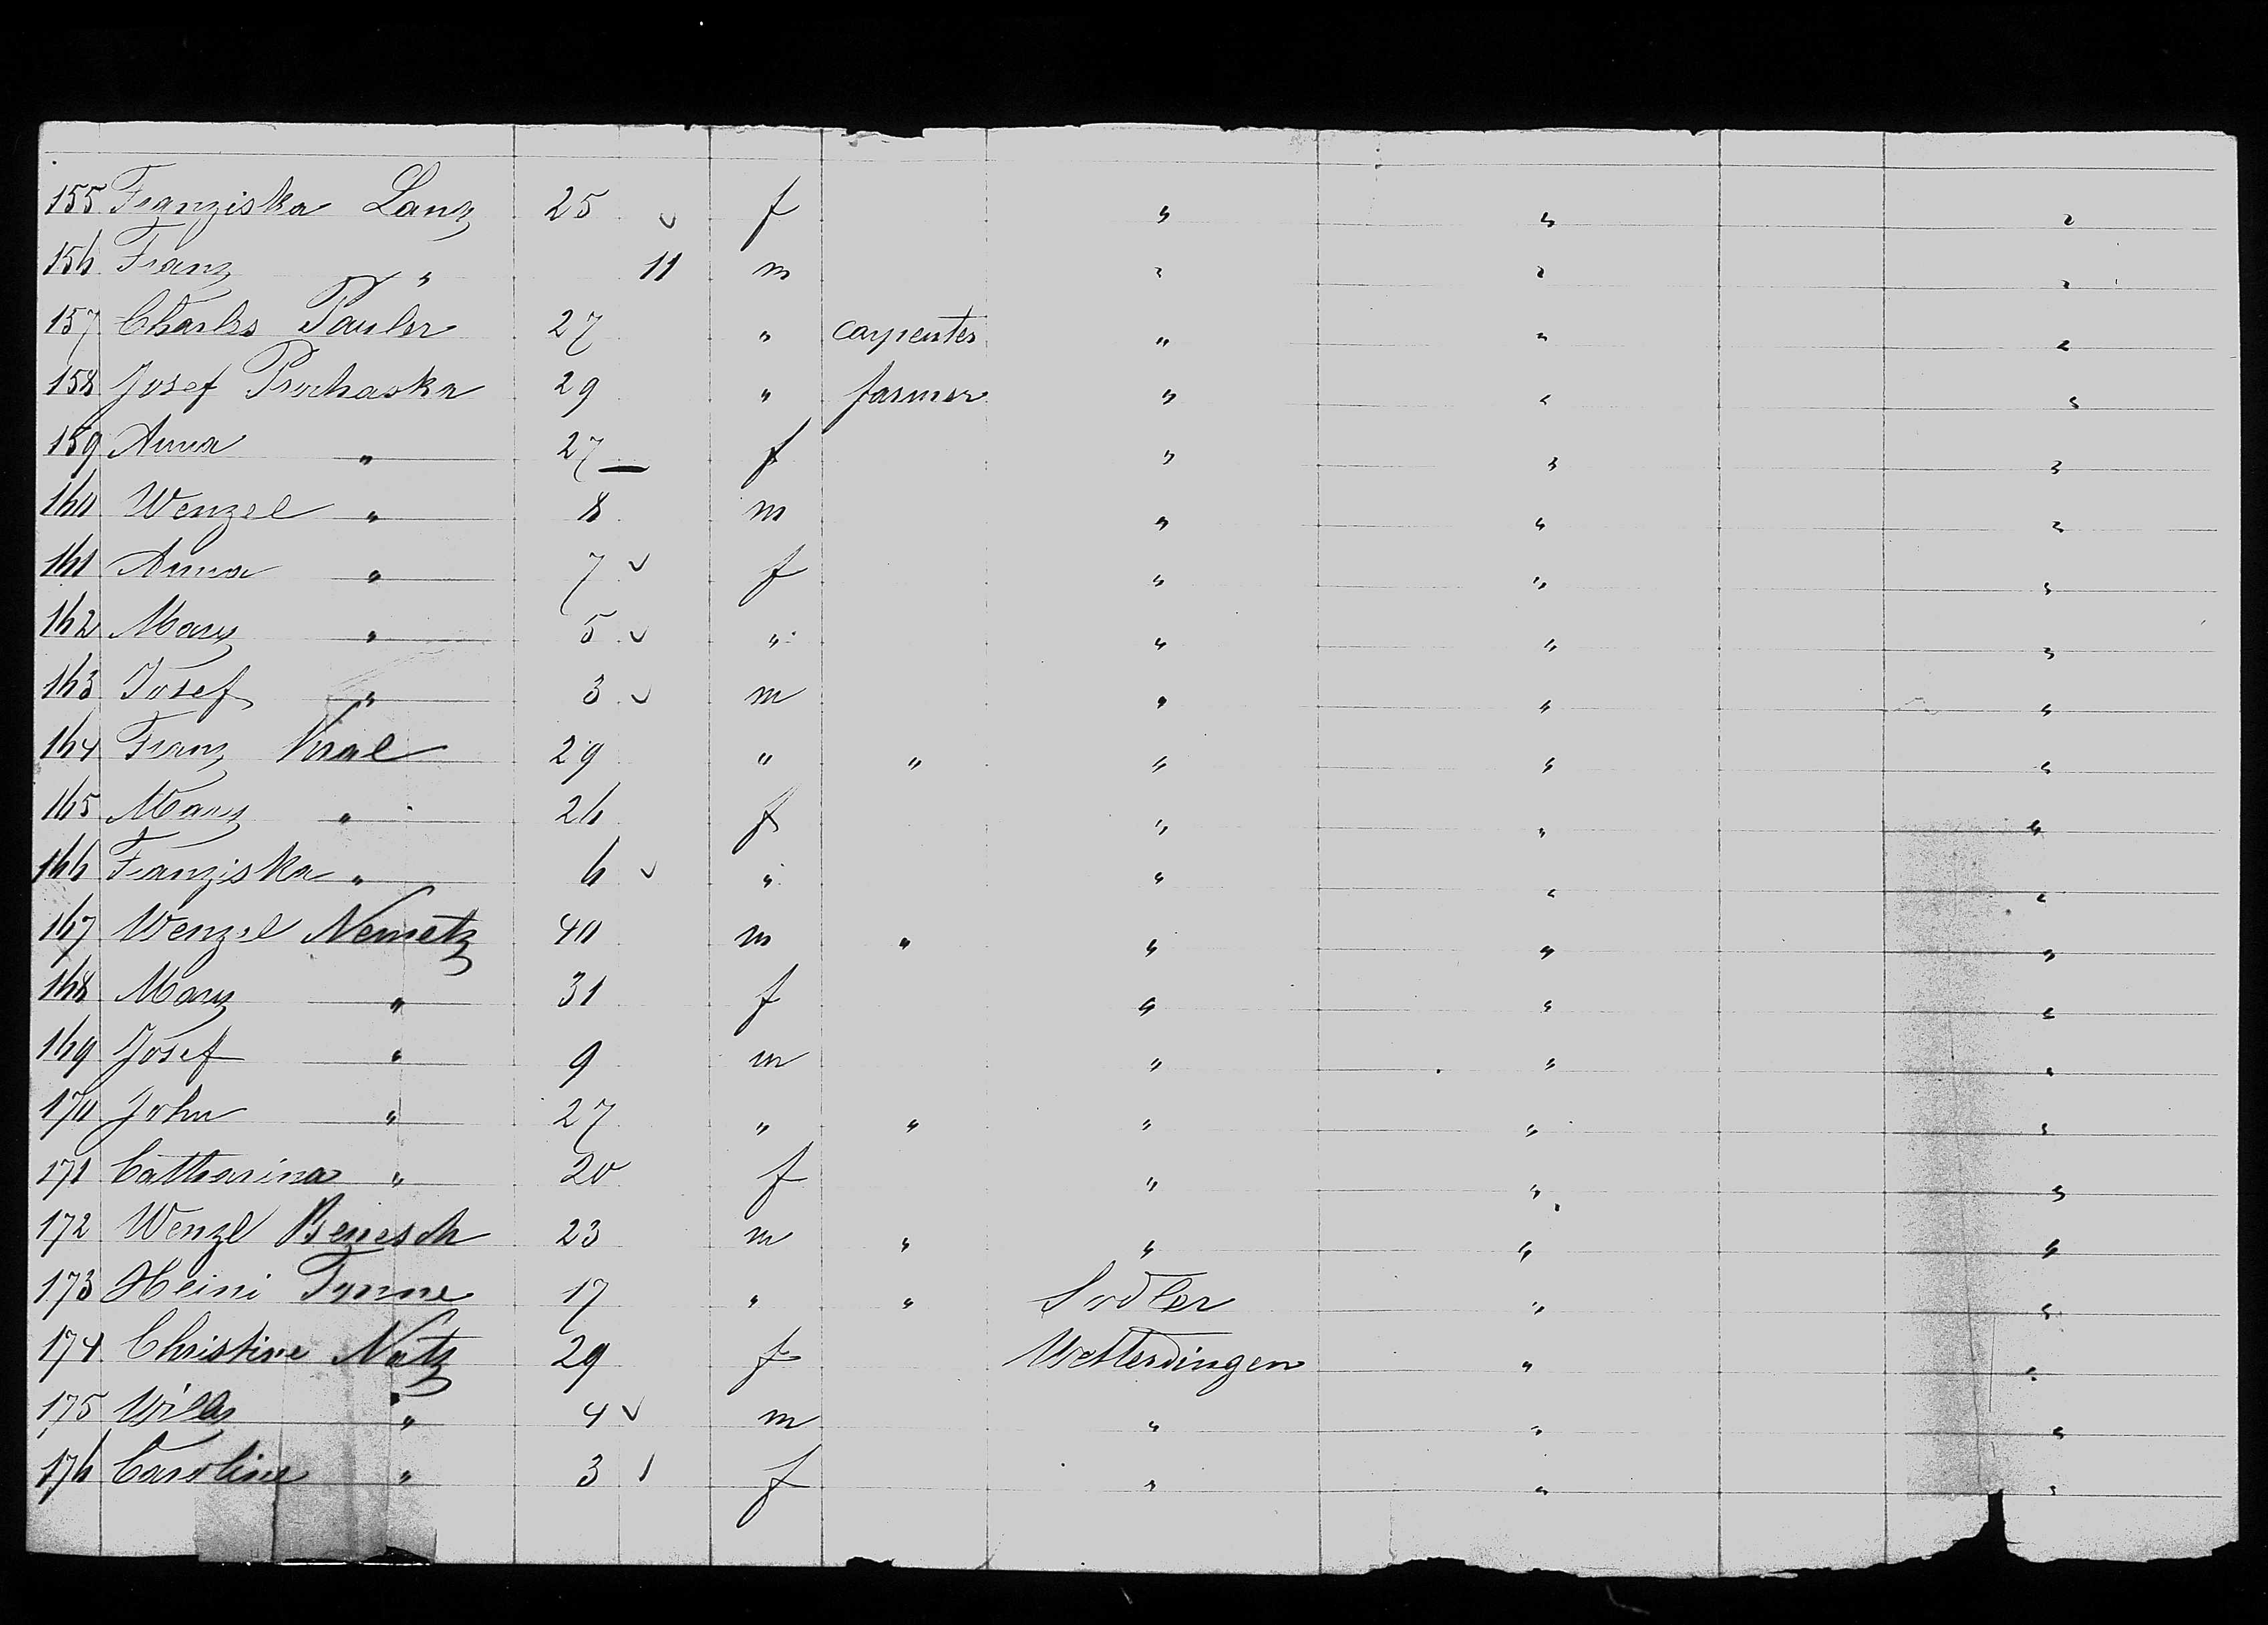 155 Franziska Lanz 25 ✓ f " " "
156 Franz " 11 m " " "
157 Charles Pauler 27 " carpenter " " "
158 Josef Prochaska 29 " farmer " " "
159 Anna " 27 — f " " "
160 Wenzel " 8 m " " "
161 Anna " 7 ✓ f " " "
162 Mary " 5 ✓ " " " "
163 Josef " 3 ✓ m " " "
164 Franz Kral 29 " " " " "
165 Mary " 26 f " " "
166 Franziska " 6 ✓ " " " "
167 Wenzel Nemetz 40 m " " " "
168 Mary " 31 f " " "
169 Josef " 9 m " " "
170 John " 27 " " " " "
171 Catharina " 20 f " " "
172 Wenzl Benesch 23 m " " " "
173 Heini 17 " " Sodler " "
174 Christine Natz 29 f Wetterdingen " "
175 Willy " 4 ✓ m " " "
176 Caroline " 3 ✓ f " " "